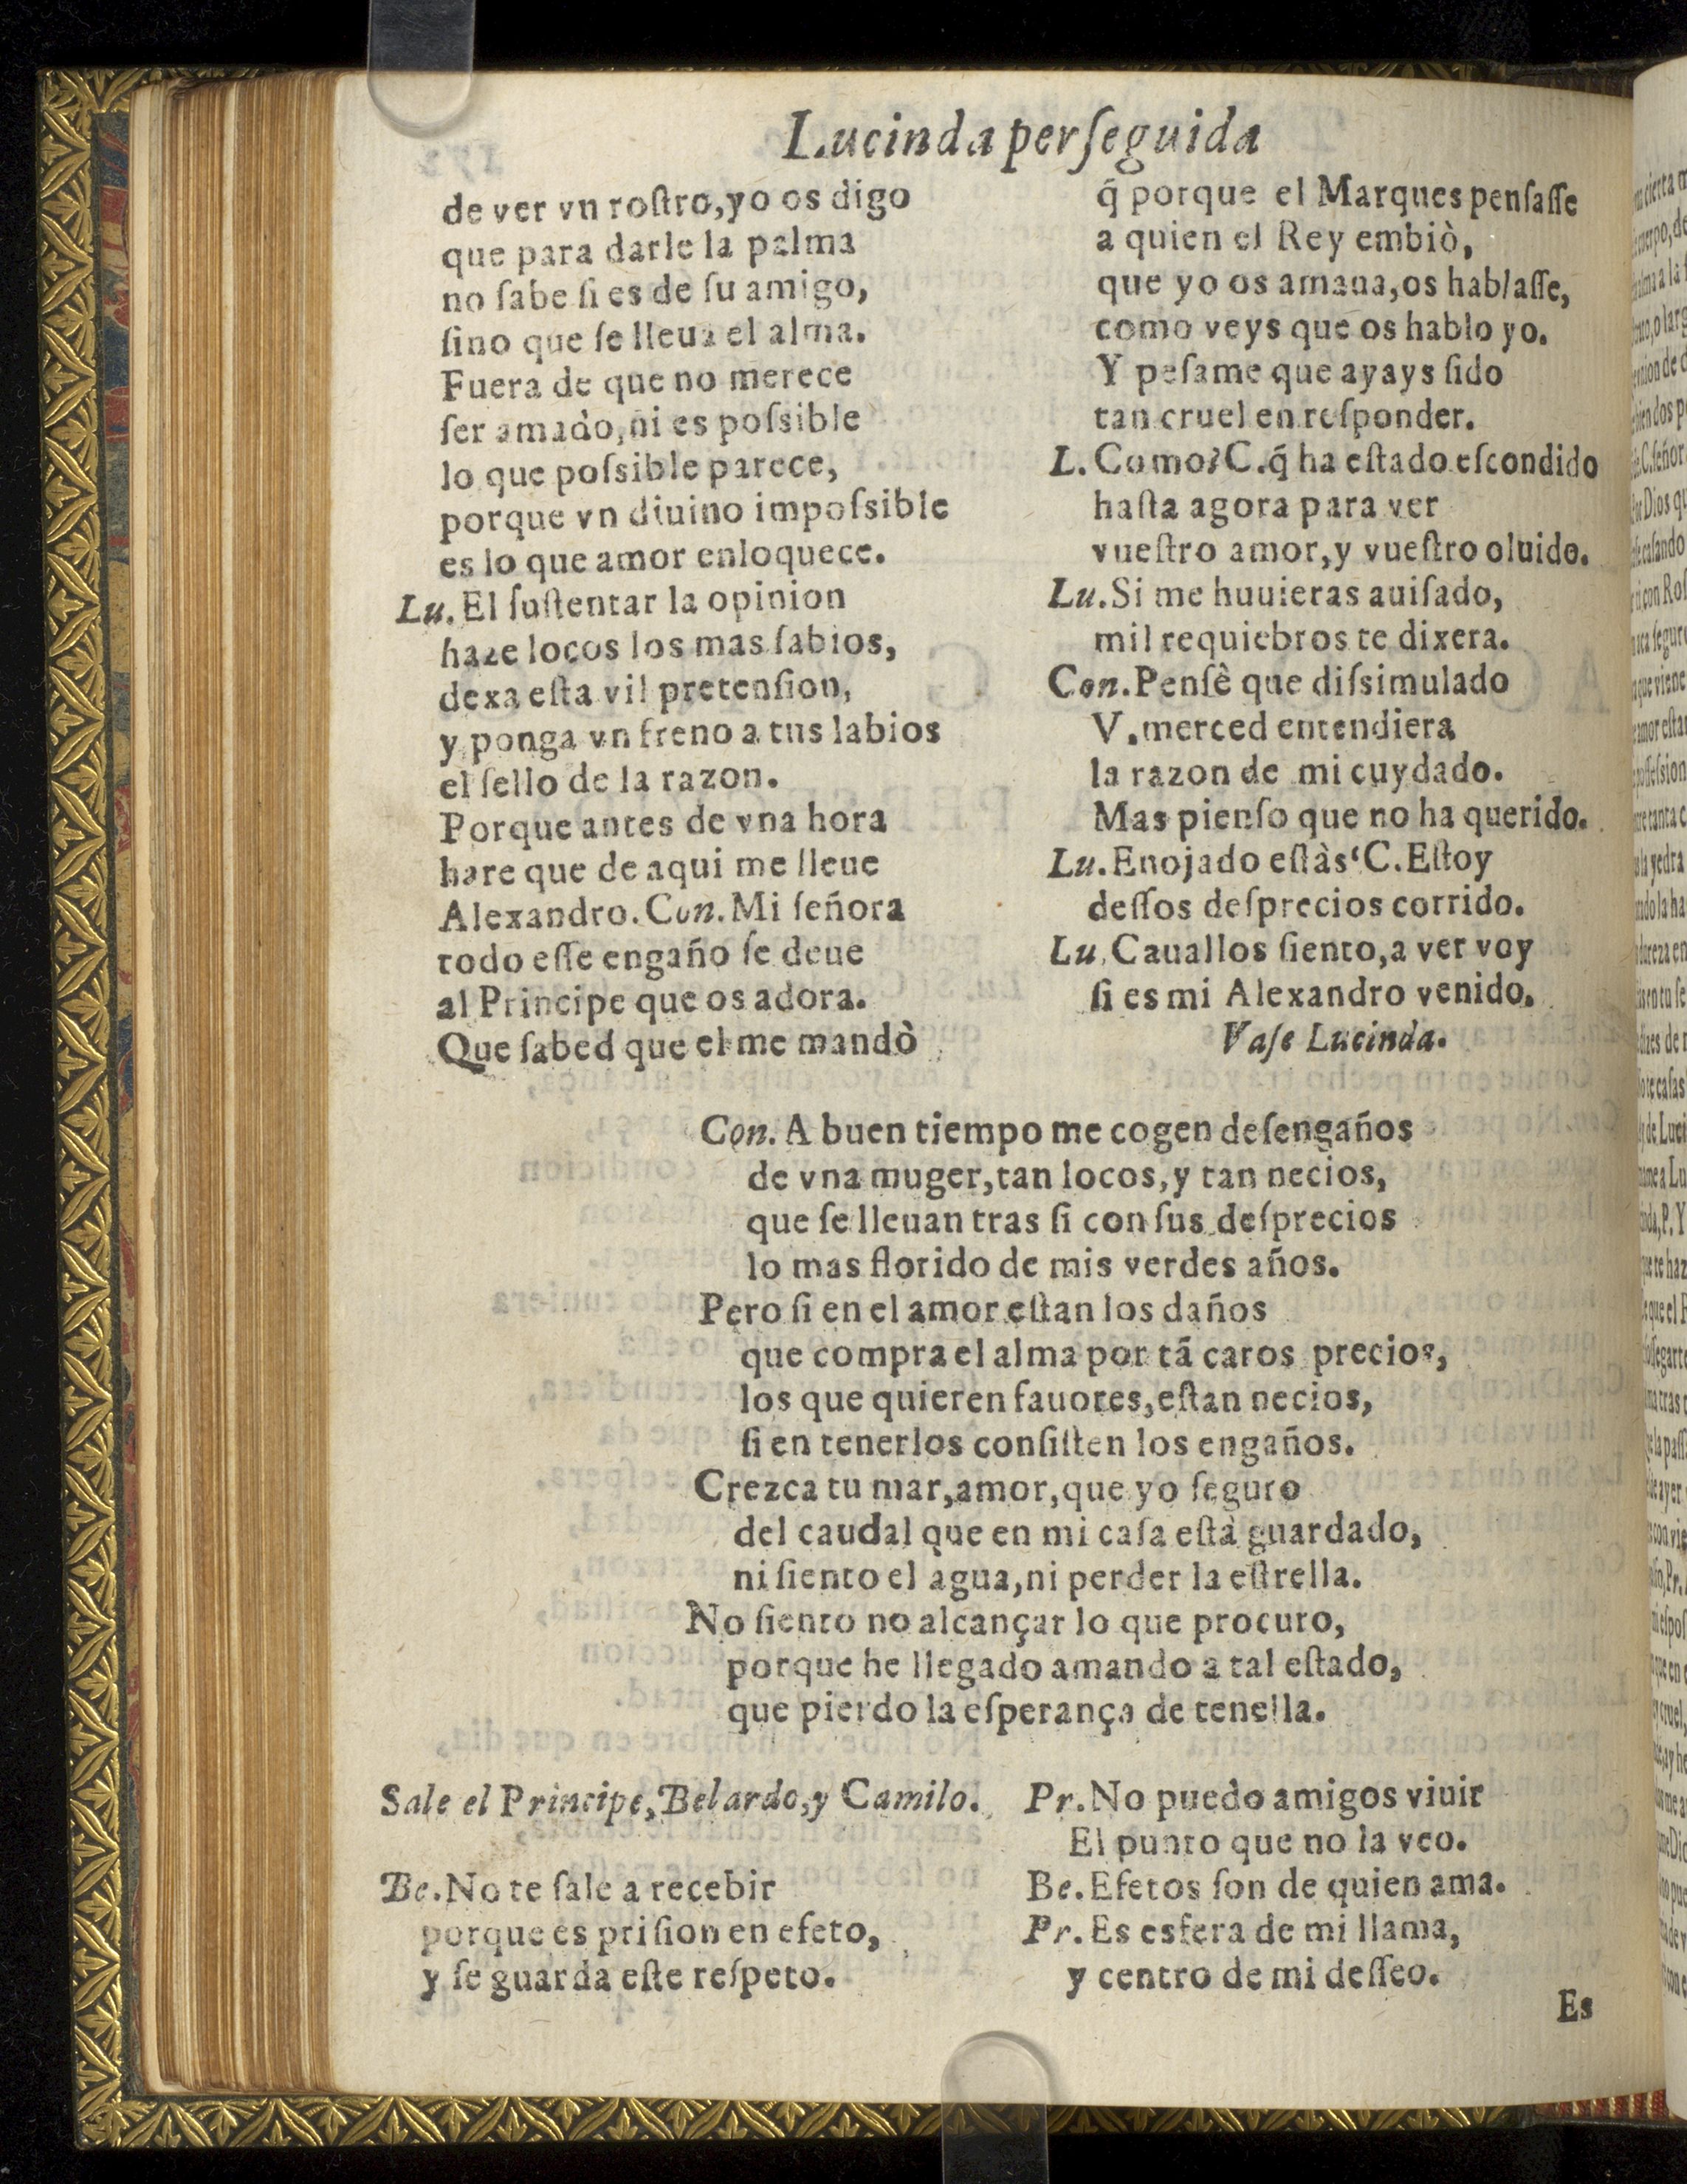 Lucinda perſeguida
de ver vn roſtro, yo os digo
que para darle la palma
no ſabe ſi es de ſu amigo,
ſino que ſe lleua el alma.
Fuera de que no merece
ſer amado, ni es poſsible
lo que poſsible parece,
porque vn diuino impoſsible
es lo que amor enloquece.
Lu. El ſuſtentar la opinion
haze locos los mas ſabios,
dexa eſta vil pretenſion,
y ponga vn freno a tus labios
el ſello de la razon.
Porque antes de vna hora
hare que de aqui me lleue
Alexandro. Con. Mi ſeñora
todo eſſe engaño ſe deue
al Principe que os adora.
Que ſabed que el me mandò
q̃ porque el Marques penſaſſe
a quien el Rey embiò,
que yo os amaua, os hablaſſe,
como veys que os hablo yo.
Y peſame que ayays ſido
tan cruel en reſponder.
L. Como? C. q̃ ha eſtado eſcondido
haſta agora para ver
vueſtro amor, y vueſtro oluido.
Lu. Si me huuieras auiſado,
mil requiebros te dixera.
Con. Penſè que diſsimulado
V. merced entendiera
la razon de mi cuydado.
Mas pienſo que no ha querido.
Lu. Enojado eſtàs? C. Eſtoy
deſſos deſprecios corrido.
Lu. Cauallos ſiento, a ver voy
ſi es mi Alexandro venido.
Vaſe Lucinda.
Con. A buen tiempo me cogen deſengaños
de vna muger, tan locos, y tan necios,
que ſe lleuan tras ſi con ſus deſprecios
lo mas florido de mis verdes años.
Pero ſi en el amor eſtan los daños
que compra el alma por tã caros precios,
los que quieren fauores, eſtan necios,
ſi en tenerlos conſiſten los engaños.
Crezca tu mar, amor, que yo ſeguro
del caudal que en mi caſa eſtà guardado,
ni ſiento el agua, ni perder la eſtrella.
No ſiento no alcançar lo que procuro,
porque he llegado amando a tal eſtado,
que pierdo la eſperança de tenella.
Sale el Principe, Belardo, y Camilo.
Be. No te ſale a recebir
porque es priſion en efeto,
y ſe guarda eſte reſpeto.
Pr. No puedo amigos viuir
El punto que no la veo.
Be. Efetos ſon de quien ama.
Pr. Es esfera de mi llama,
y centro de mi deſſeo.
Es